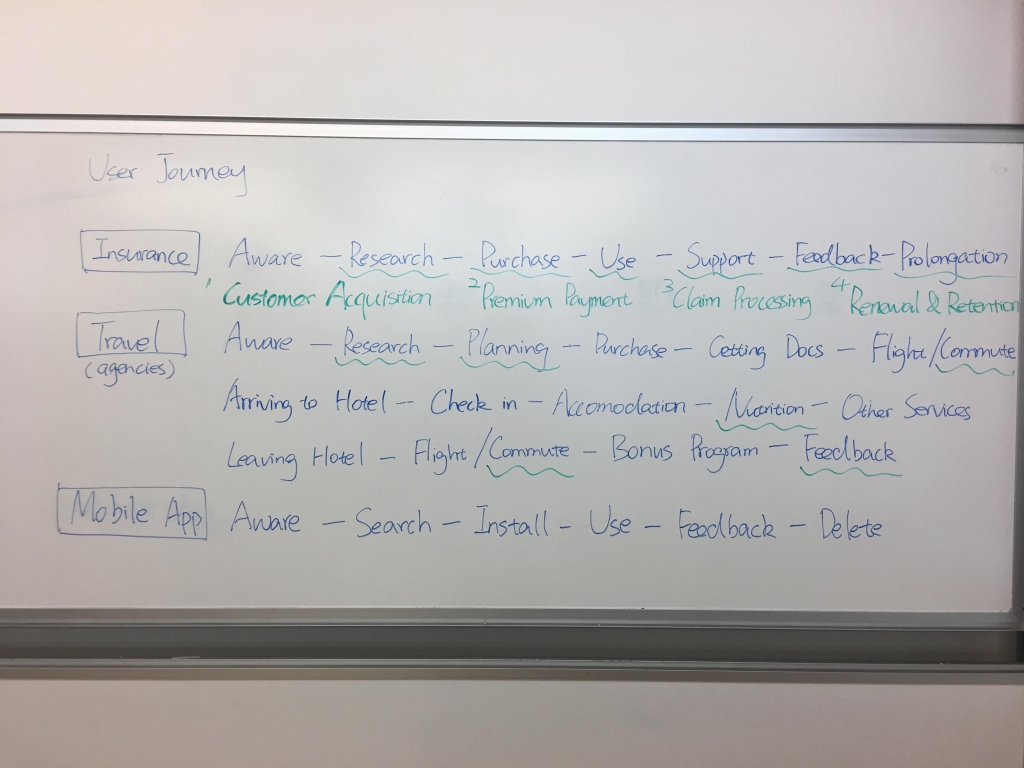 User Journey
Insurance Aware - Research - Purchase - Use - Support - Feedback - Prolongation
1 Customer Acquisition 2 Premium Payment 3 Claim Processing 4 Renewal & Retention
Travel Aware - Research - Planning - Purchase - Getting Docs - Flight/Commute
(agencies)
Arriving to Hotel - Check in - Accomodation - Nutrition - Other Services
Leaving Hotel - Flight/Commute - Bonus Program - Feedback
Mobile App Aware - Search - Install - Use - Feedback - Delete